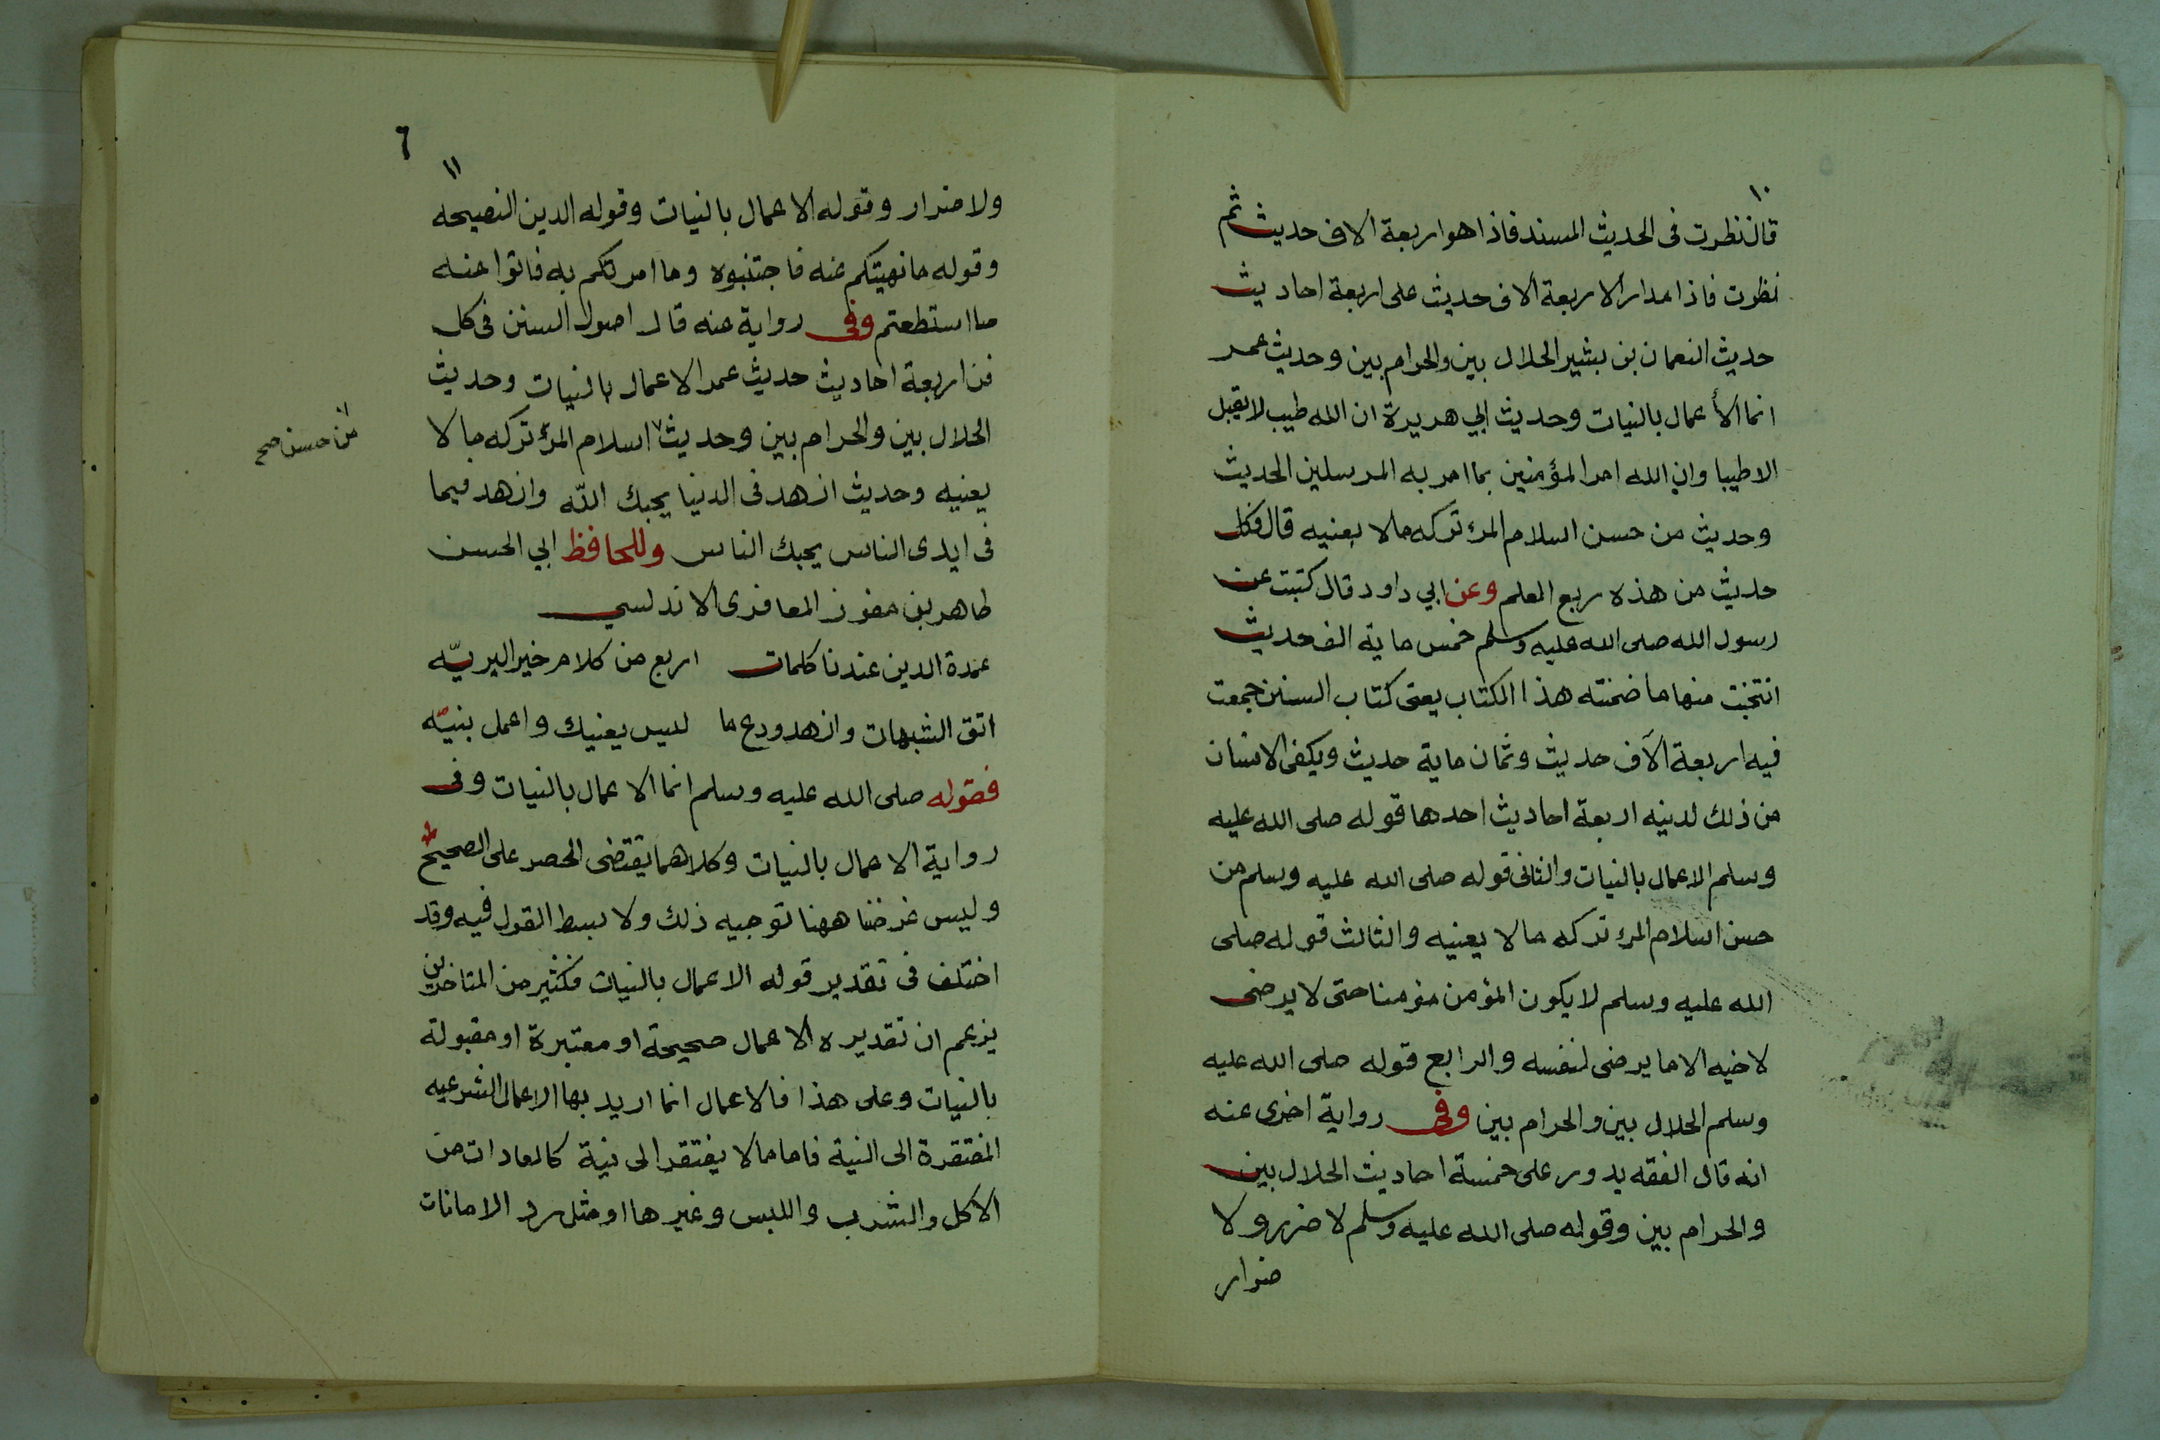 ١٠
قال نظرت فى الحديث المسند فاذا هو اربعة الاف حديث ثم
نظرت فاذا مدار الاربعة الاف حديث على اربعة احاديث
حديث النعمان بن بشير الحلال بين والحرام بين وحديث عمر
انما الأعمال بالنيات وحديث ابي هريرة ان الله طيب لا يقبل
الا طيبا وان الله امر المؤمنين بما امر به المرسلين الحديث
وحديث من حسن اسلام المرء تركه ما لا يعنيه قال فكل
حديث من هذه ربع العلم وعن ابي داود قال كتبت عن
رسول الله صلى الله عليه وسلم خمس ماية الف حديث
انتخبت منها ما ضمنته هذا الكتاب يعنى كتاب السنن جمعت
فيه اربعة الآف حديث وثمان ماية حديث ويكفى الانسان
من ذلك لدينه اربعة احاديث احدها قوله صلى الله عليه
وسلم الاعمال بالنيات والثانى قوله صلى الله عليه وسلم من
حسن اسلام المرء تركه ما لا يعنيه والثالث قوله صلى
الله عليه وسلم لا يكون المؤمن مؤمنا حتى لا يرضى
لاخيه الا ما يرضى لنفسه والرابع قوله صلى الله عليه
وسلم الحلال بين والحرام بين وفى رواية اخرى عنه
انه قال الفقه يدور على خمسة احاديث الحلال بين
والحرام بين وقوله صلى الله عليه وسلم لا ضرر ولا
ضرار
٦
١١
ولا ضرار وقوله الاعمال بالنيات وقوله الدين النصيحه
وقوله ما نهيتكم عنه فاجتنبوه وما امرتكم به فاتوا منه
ما استطعتم وفى رواية عنه قال اصول السنن فى كل
فن اربعة احاديث حديث عمر الاعمال بالنيات وحديث
الحلال بين والحرام بين وحديث اسلام المرء تركه ما لا
من حسن صح
يعنيه وحديث ازهد فى الدنيا يحبك الله وازهد فيما
فى ايدى الناس يحبك الناس وللحافظ ابي الحسن
طاهر بن مفوز المعافرى الاندلسي
عمدة الدين عندنا كلمات اربع من كلام خير البريّه
اتق الشبهات وازهد ودع ما ليس يعنيك واعمل بنيّه
فقوله صلى الله عليه وسلم انما الاعمال بالنيات وفى
رواية الاعمال بالنيات وكلاهما يقتضى الحصر على الصحيح
وليس غرضنا ههنا توجيه ذلك ولا بسط القول فيه وقد
اختلف فى تقدير قوله الاعمال بالنيات فكثير من المتاخرين
يزعم ان تقديره الاعمال صحيحة او معتبرة او مقبولة
بالنيات وعلى هذا فالاعمال انما اريد بها الاعمال الشرعيه
المفتقرة الى النية فاما ما لا يفتقر الى نية كالعادات من
الاكل والشرب واللبس وغيرها او مثل رد الامانات